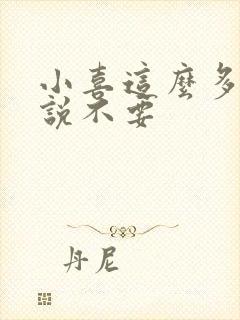 小喜這麼多
說不要
丹尼